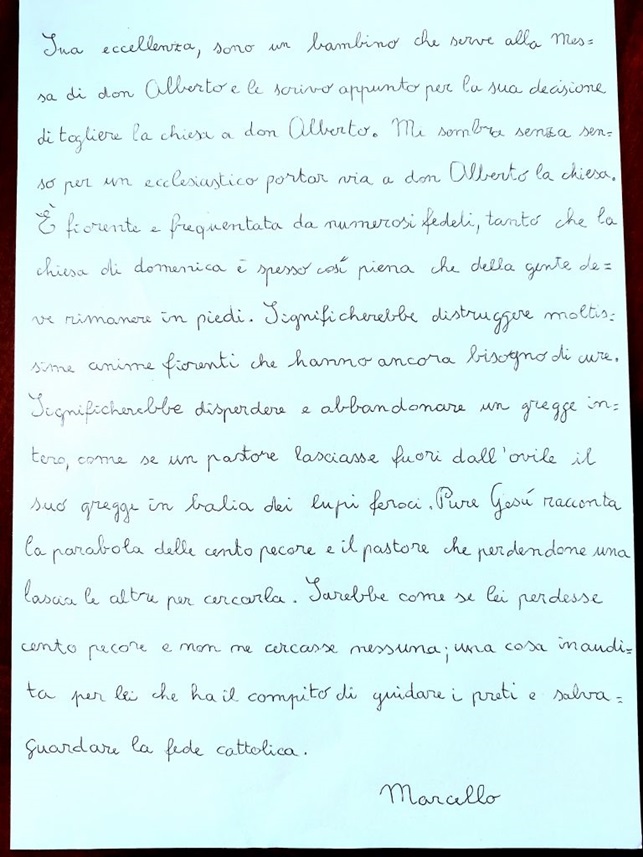 Sua eccellenza, sono un bambino che serve alla Mes=
sa di don Alberto e le scrivo appunto per la sua decisione
di togliere la chiesa a don Alberto. Mi sembra senza sen=
so per un ecclesiastico portar via a don Alberto la chiesa.
È fiorente e frequentata da numerosi fedeli, tanto che la
chiesa di domenica è spesso così piena che della gente de=
ve rimanere in piedi. Significherebbe distruggere moltis=
sime anime fiorenti che hanno ancora bisogno di cure.
Significherebbe disperdere e abbandonare un gregge in=
tero, come se un pastore lasciasse fuori dall'ovile il
suo gregge in balia dei lupi feroci. Pure Gesú racconta
la parabola delle cento pecore e il pastore che perdendone una
lascia le altre per cercarla. Sarebbe come se lei perdesse
cento pecore e non ne cercasse nessuna; una cosa inaudi=
ta per lei che ha il compito di guidare i preti e salva=
guardare la fede cattolica.
Marcello